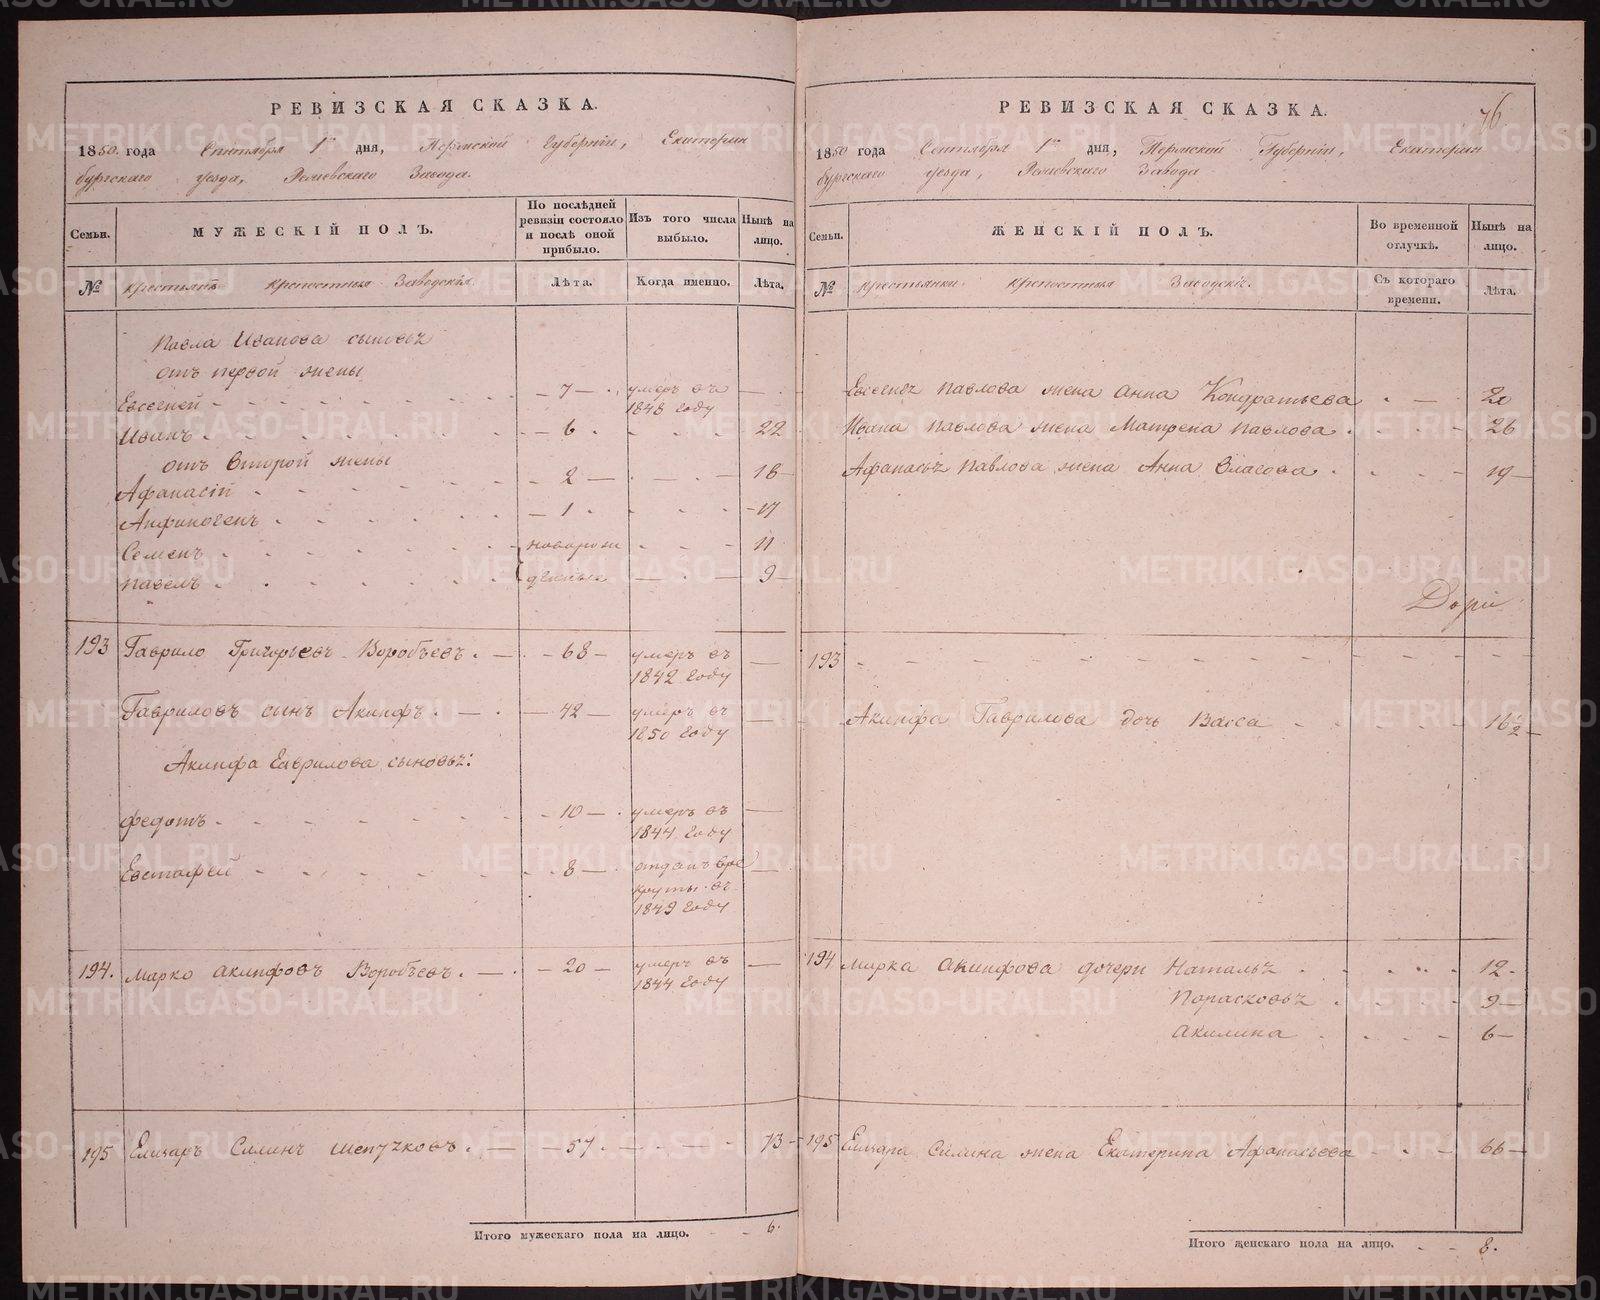 РЕВИЗСКАЯ СКАЗКА.
1850 года Сентября 1го дня, Пермской Губернiи, Екатерин
бургскаго уезда, Ревдевскаго Завода.
Семьи.
МУЖЕСКIЙ ПОЛЪ.
По послѣдней ревизiи состояло и послѣ оной прибыло.
Изъ того числа выбыло.
Нынѣ на лицо.
№
крепостныя Заводскiя.
Лѣта.
Когда именно.
Лѣта.
Павла Иванова сыновья
отъ первой жены
Евсегней 7 умеръ въ 1848 году
Иванъ 6 22
отъ второй жены
Афанасiй 2 18
Анфиногенъ 1 17
Семенъ новорож 11
Павелъ денные 9
193 Гаврило Григорьевъ Воробьевъ. 68 умеръ въ 1842 году
Гавриловъ сынъ Акинфъ. 42 умеръ въ 1850 году
Акинфа Гаврилова сыновья:
Федотъ 10 умеръ въ 1844 году
Евстафей 8 отданъ вре круты въ 1849 году
194. Марко Акинфовъ Воробьевъ. 20 умеръ въ 1844 году
195 Елизаръ Силинъ 57 73
Итого мужескаго пола на лицо. 6.
76
РЕВИЗСКАЯ СКАЗКА.
1850 года Сентября 1го дня, Пермской Губернiи, Екатерин
бургскаго уезда, Ревдевскаго Завода
Семьи.
ЖЕНСКIЙ ПОЛЪ.
Во временной отлучкѣ.
Нынѣ на лицо.
№
крестьянки крепостныя
Съ котораго времени.
Лѣта.
Павлова жена Анна Кондратьева
Ивана Павлова жена Матрена Павлова 26
Афанасья Павлова жена Анна Власова 19
193
Акинфа Гаврилова дочь Васса 16½
194 Марка Акинфова дочери Наталья 12
Парасковья 9
Акилина 6
195 Елизара Силина жена Екатерина Афанасьева 66
Итого женскаго пола на лицо. 8.
METRIKI.GASO-URAL.RU